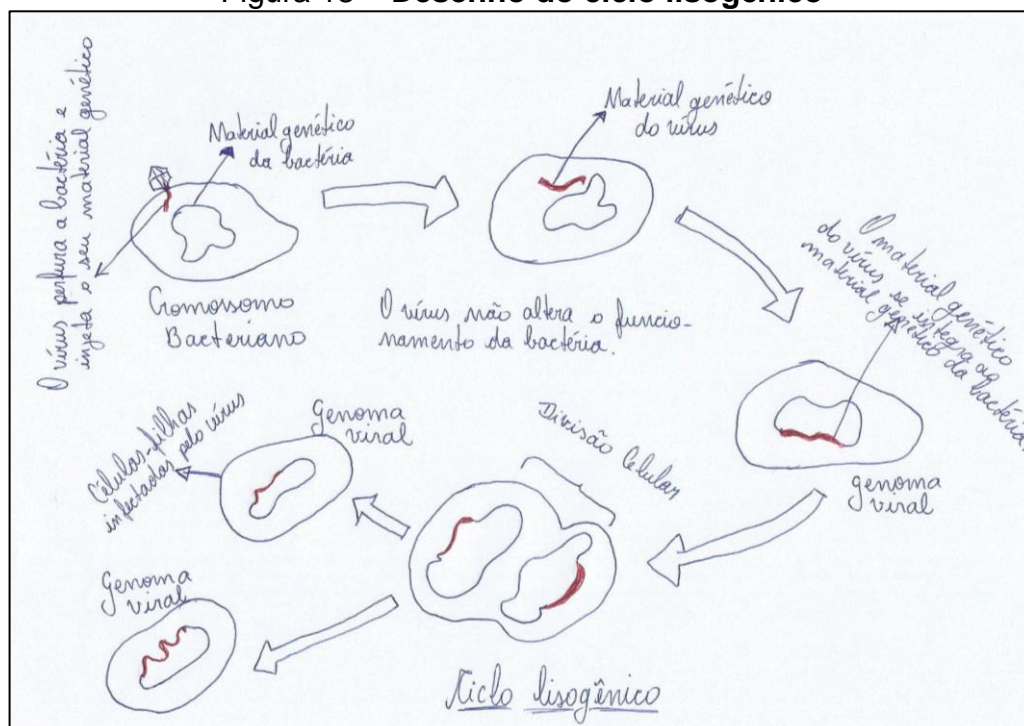 O vírus perfura a bactéria e
injeta o seu material genético
Material genético
da bactéria
Cromossomo
Bacteriano
Material genético
do vírus
O vírus não altera o funcio-
namento da bactéria.
O material genético
do vírus se integra ao
material genético da bactéria
genoma
viral
Divisão Celular
Genoma
viral
Células-filhas
infectadas pelo vírus
Genoma
viral
Ciclo lisogênico